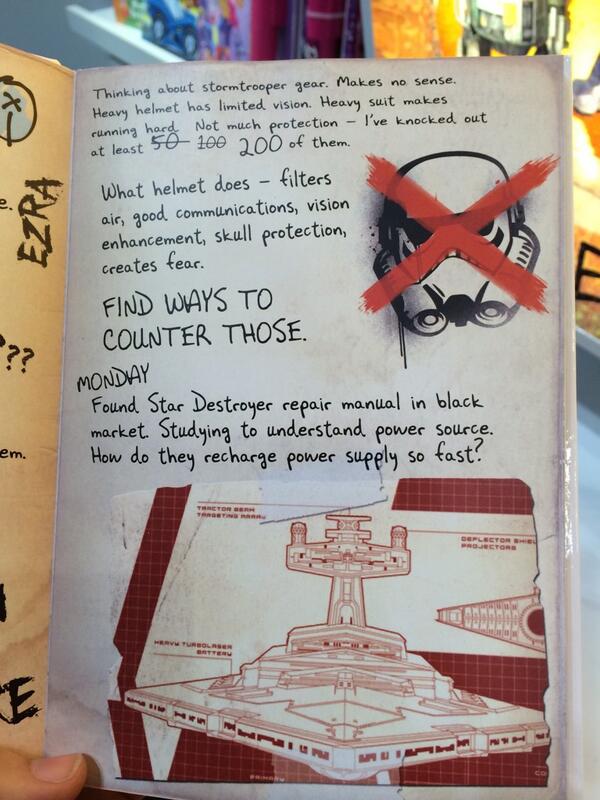 Thinking about stormtrooper gear. Makes no sense.
Heavy helmet has limited vision. Heavy suit makes
running hard. Not much protection – I've knocked out
at least 50 100 200 of them.
What helmet does – filters
air, good communications, vision
enhancement, skull protection,
creates fear.
FIND WAYS TO
COUNTER THOSE.
MONDAY
Found Star Destroyer repair manual in black
market. Studying to understand power source.
How do they recharge power supply so fast?
TRACTOR BEAM
TARGETING ARRAY
DEFLECTOR SHIE
PROJECTORS
HEAVY TURBOLASER
BATTERY
PRIMARY
CO
e.
EZRA
??
em.